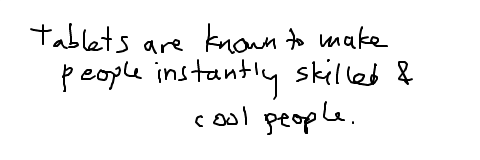 Tablets are known to make
people instantly skilled &
cool people.